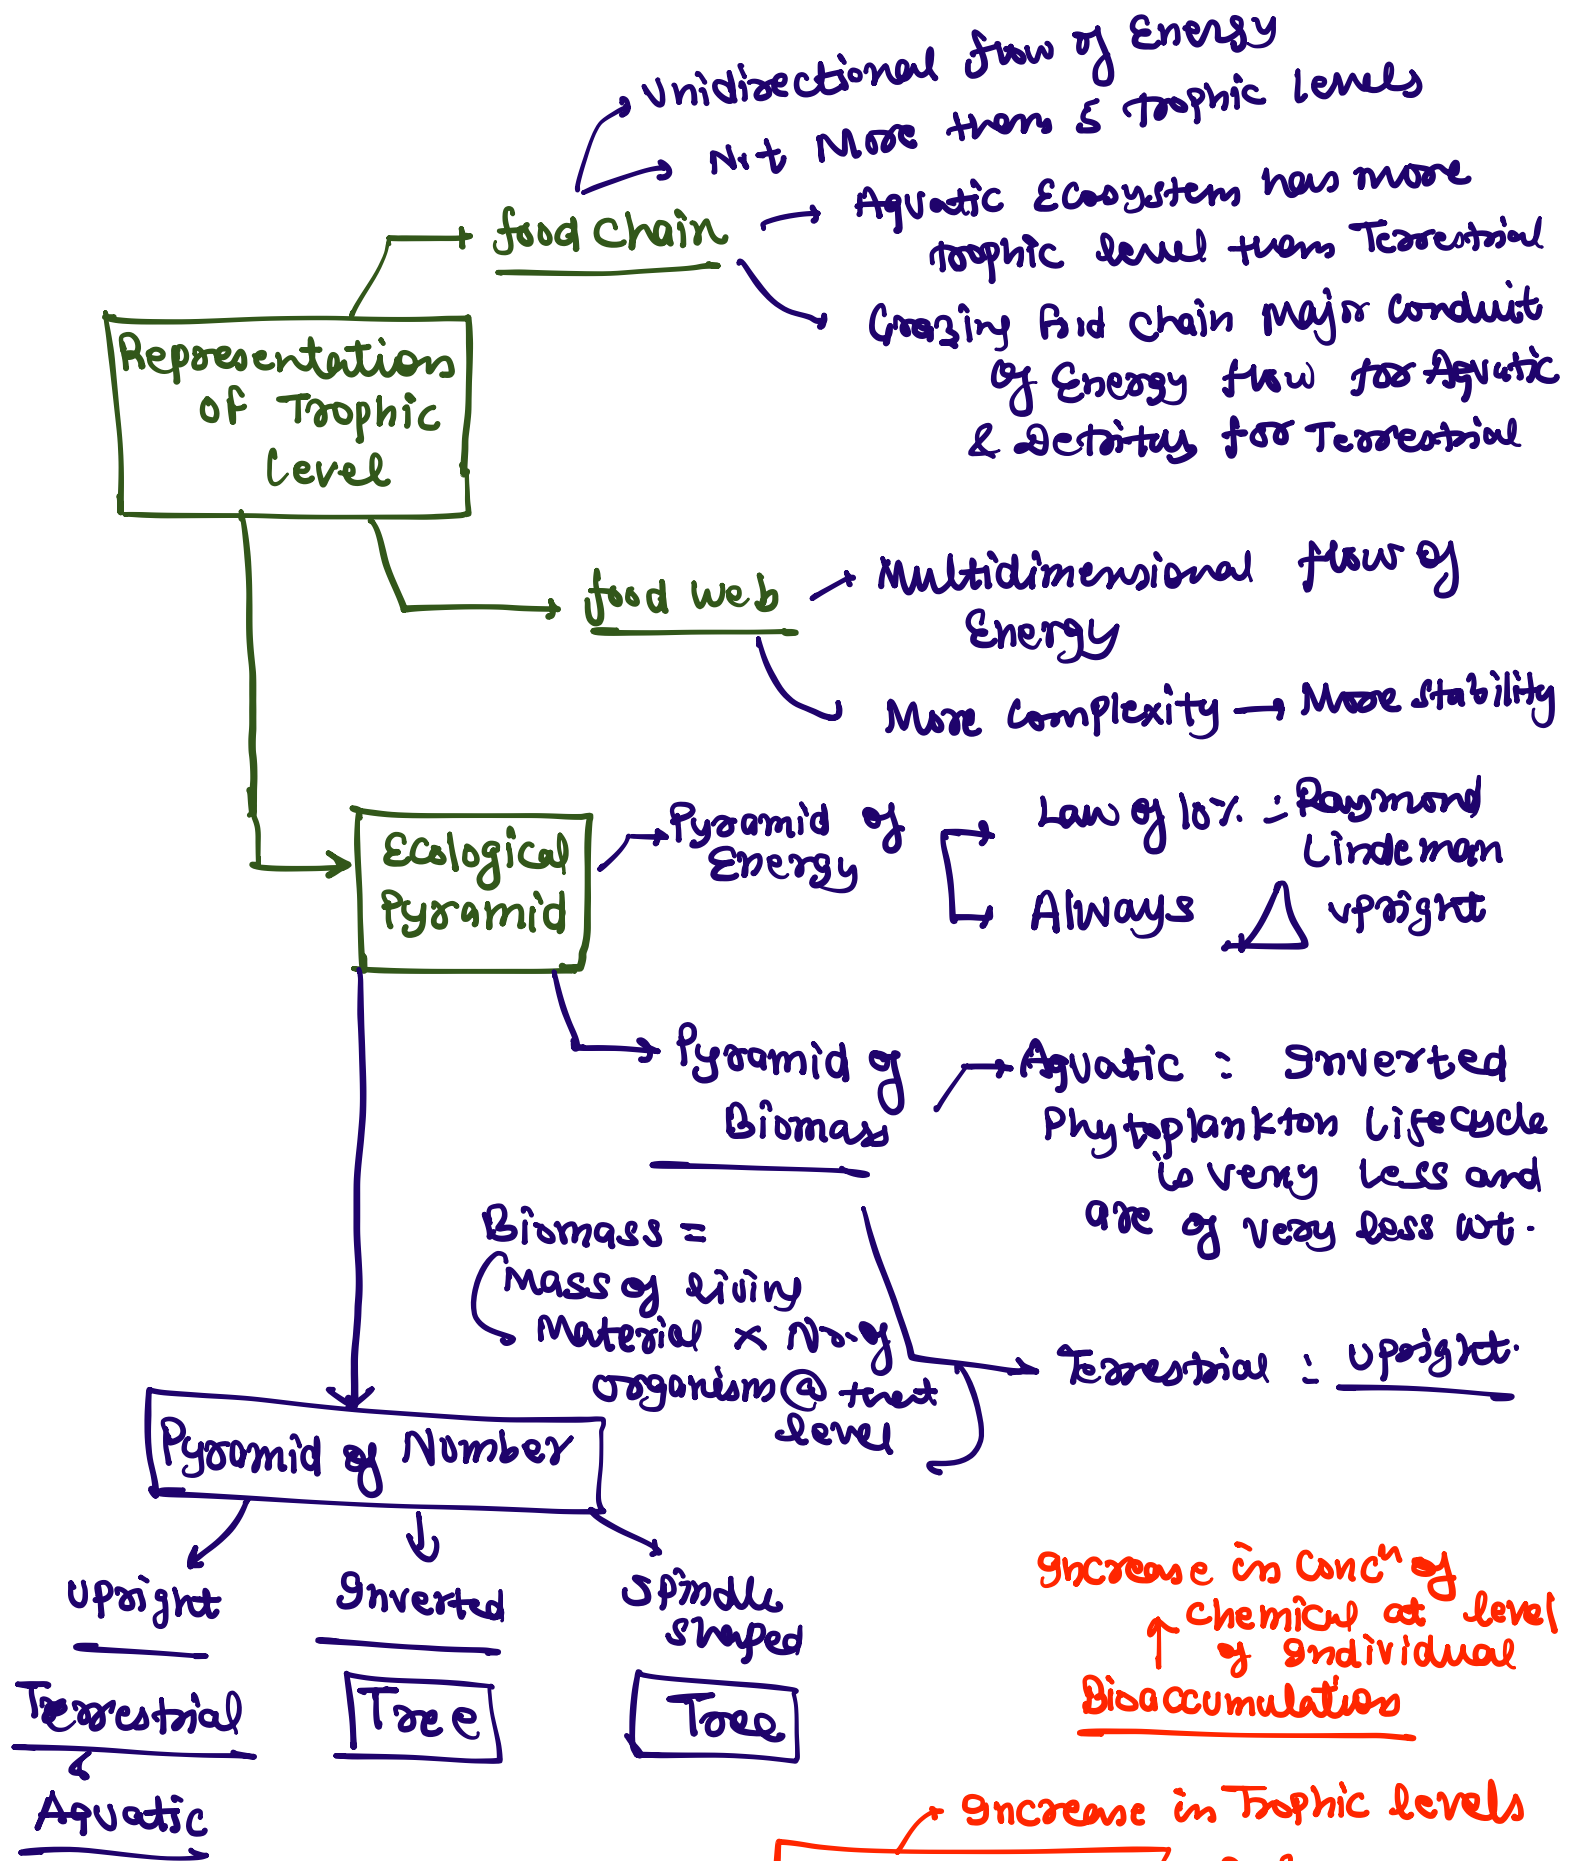 Unidirectional flow of Energy
Not More than 5 Trophic levels
food chain
Aquatic Ecosystem has more
trophic level than Terrestrial
Grazing food chain Major conduit
of Energy flow for Aquatic
& Detritus for Terrestrial
Representation
of Trophic
Level
food web
Multidimensional flow of
Energy
More complexity → More stability
Ecological
Pyramid
Pyramid of
Energy
Law of 10% = Raymond
Lindeman
Always △ upright
Pyramid of
Biomass
Aquatic : Inverted
Phytoplankton Lifecycle
is very less and
are of very less wt.
Biomass =
Mass of living
Material x No. of
organism @ that
level
Terrestrial : upright.
Pyramid of Number
upright
Inverted
Spindle
shaped
Terrestrial
Tree
Tree
Aquatic
Increase in concⁿ of
chemical at level
of Individual
Bioaccumulation
Increase in Trophic levels